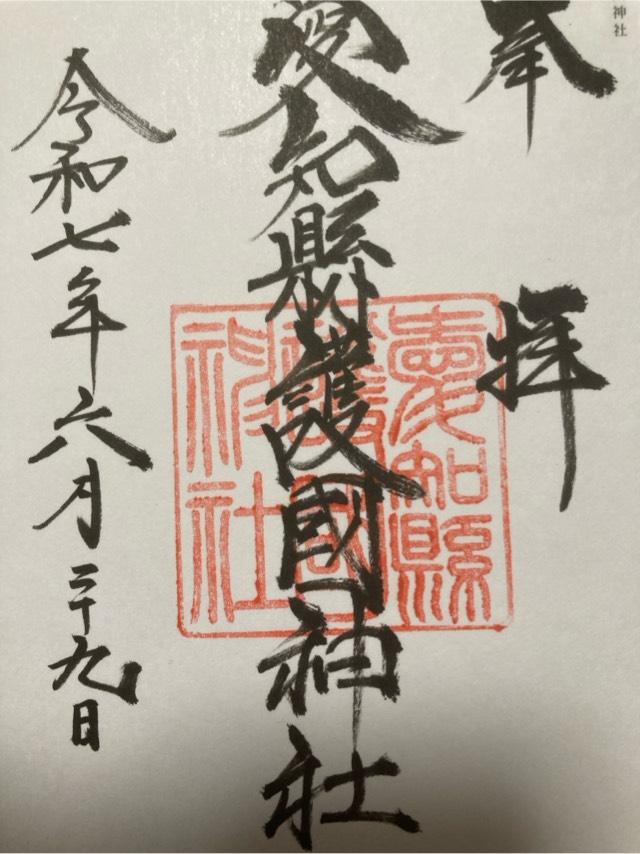 神社
奉拝
愛知縣護國神社
愛知縣
護國
神社
令和七年六月二十九日